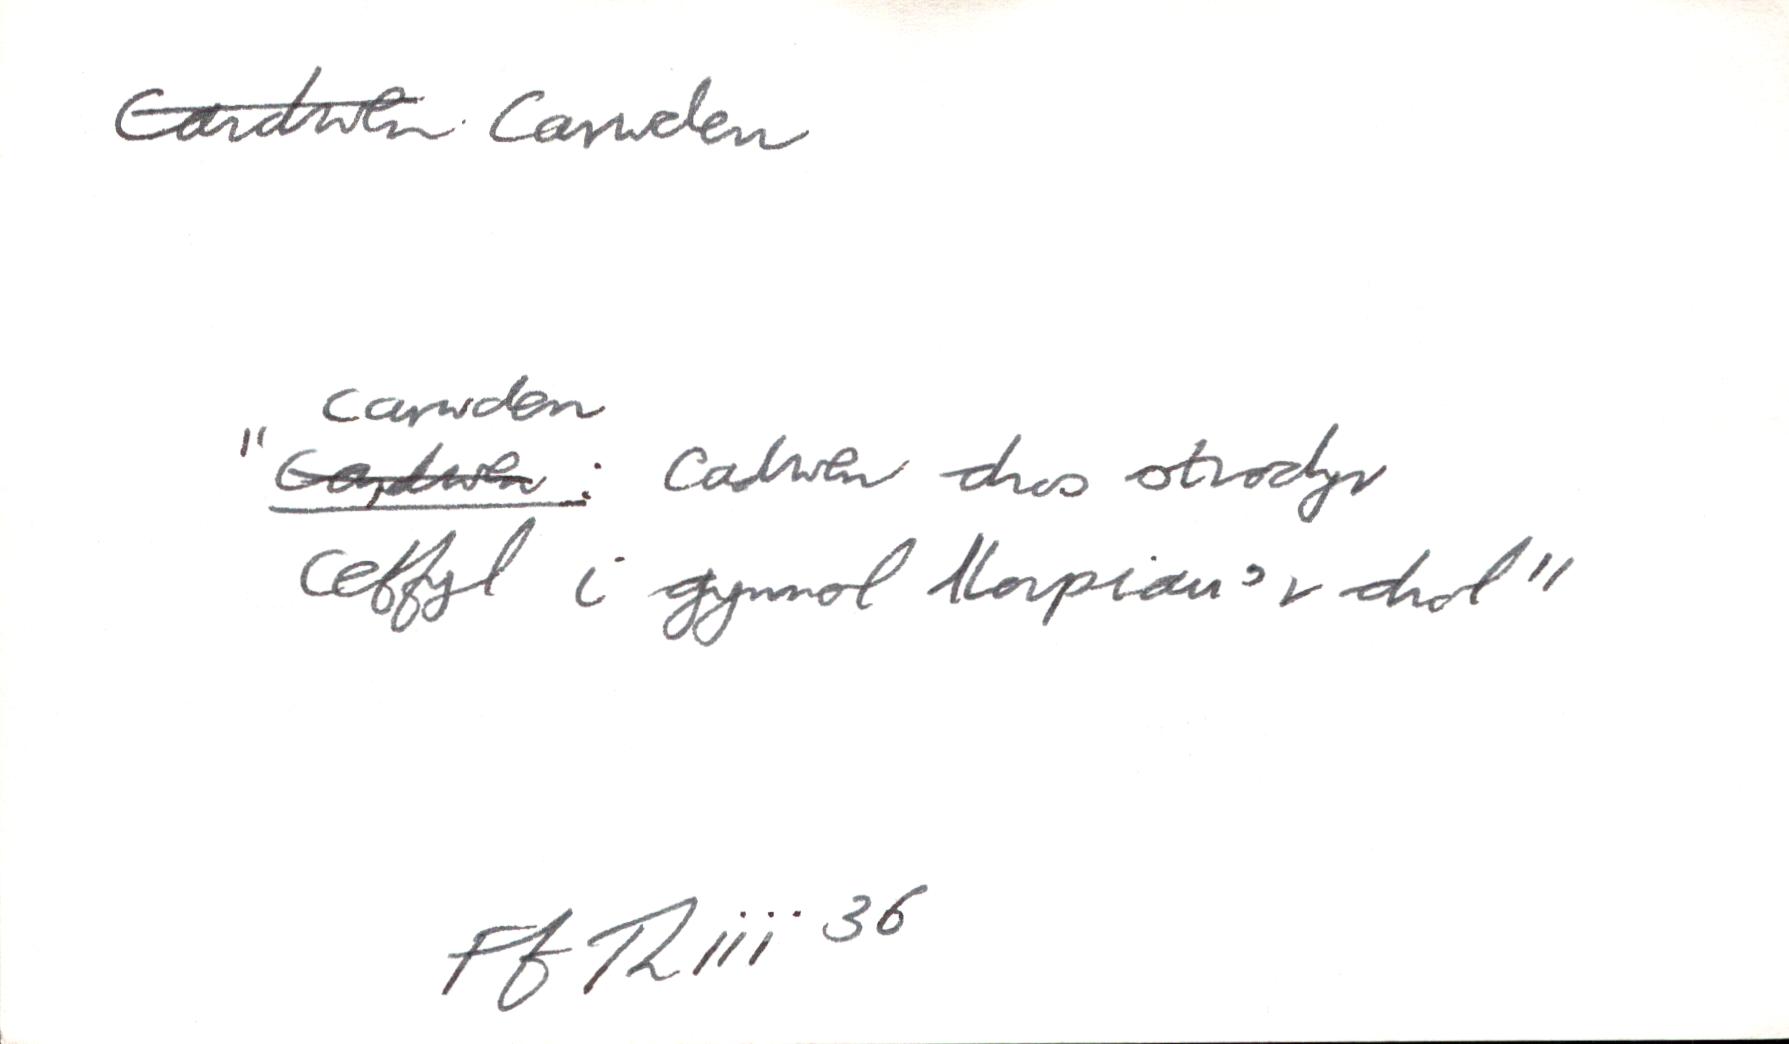 Cardwen Carwden
carwden
"Cardwen: Cadwen dros strodyr
Ceffyl i gynnal llorpiau'r drol"
Ff Th iii 36